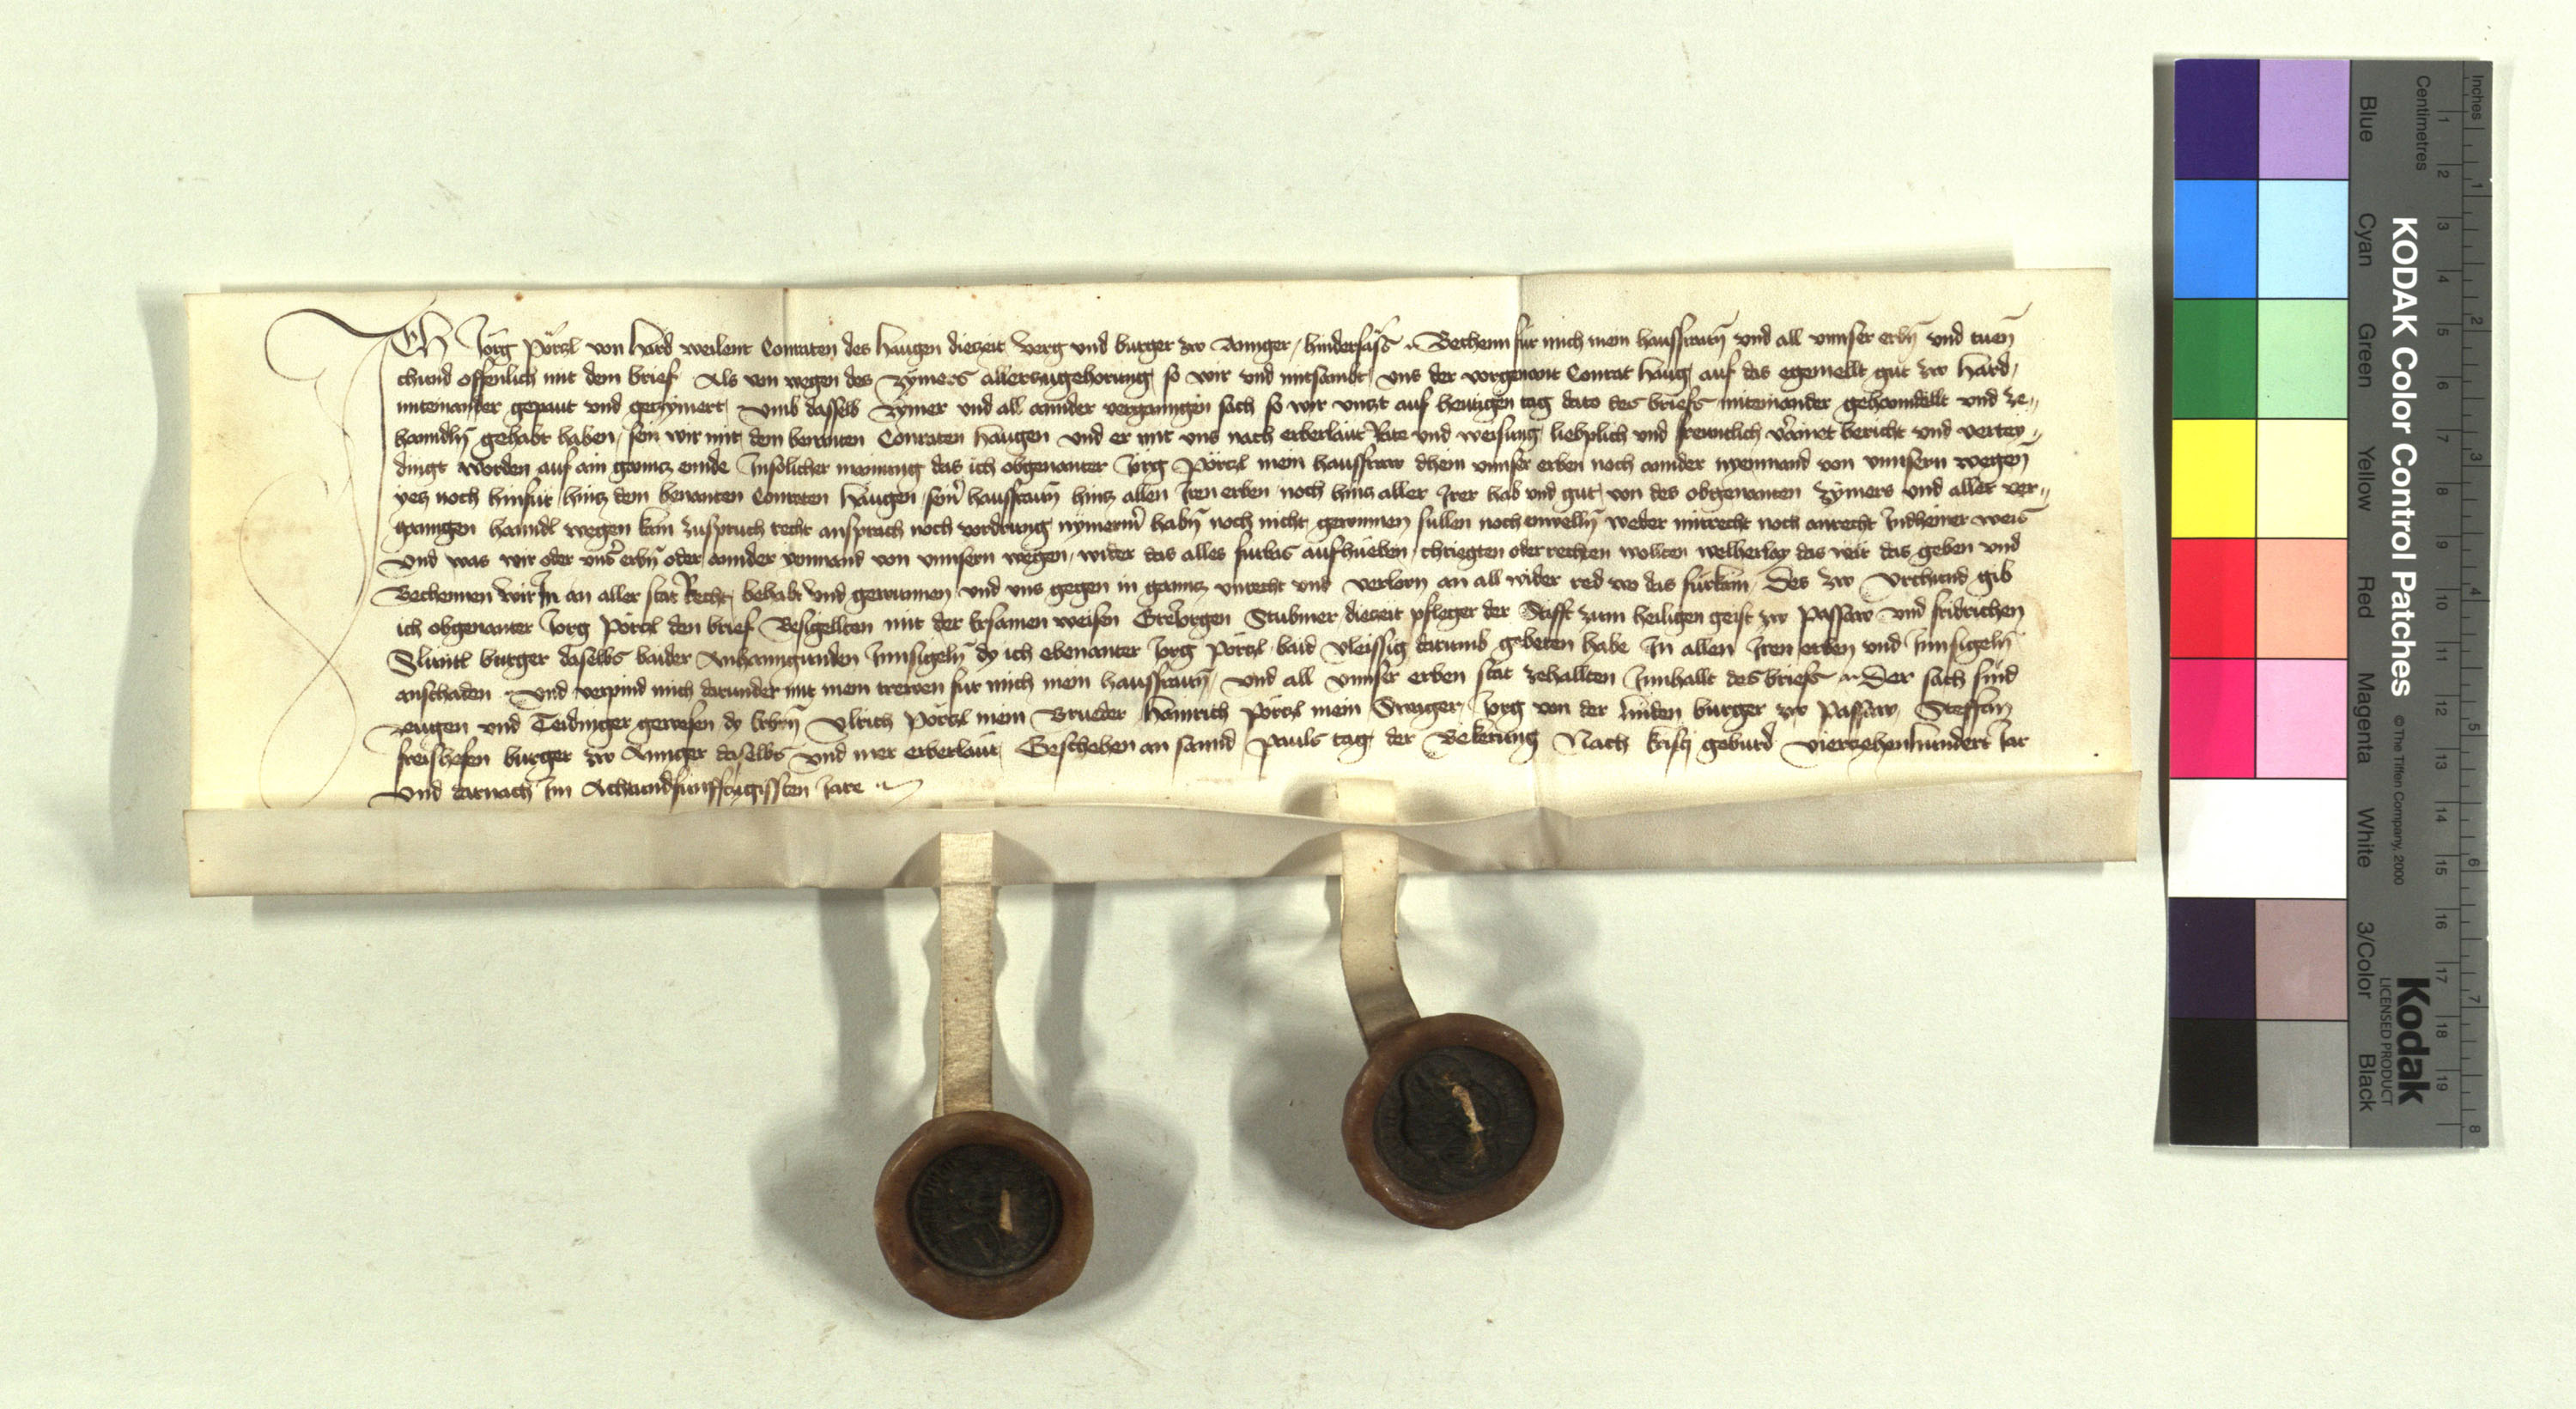 Ich Jorg Pörczl von Hard weilent Conraten des Haugen diezeit verg und burger zw hindersäss Bechenn für mich mein hausfrawn und all unnser erbn und tuen
chund offenlich mit dem brief Als von wegen des Zÿmers allerzugehorung so wir und mitsambt uns der vorgenant Conrat Haug auf das egemellt gut zw Hard
miteinander gepaut und geczÿmert umb dasselb Zÿmer und all annder vergangen sach so wir unczt auf hewtigen tag dato des briefs miteinander gehanndellt und ze
hanndln gehabt haben sein wir mit dem benanten Conraten Haugen und er mit uns nach erberlaut Rate und weisung lieplich und frewntlich veraint bericht und vertey
dingt worden auf ain gancz ennde Jnsolicher mainung das ich obgenanter Jorg Pörczl mein hausfraw dhein unnser erben noch annder nyemand von unnsern wegen
yecz noch hinfür hincz dem benanten Conraten Haugen seinr hausfrawn hincz allen Jren erben noch hincz aller Jrer hab und gut von des obgenanten Zÿmers und aller ver
ganngen hanndl wegen kain zuspruch recht ansprach noch vordrung nymermer habn noch nicht gewinnen sullen noch enwelln weder mitrecht noch anrecht Jndheiner weis
Und was wir oder unser erbn oder annder yemand von unnsern wegen wider das alles furbas aufhueben chriegten oder rechten wollten welherlay das wär das geben und
Bechennen wir Jn an aller stat Recht behabt und gewunnen und uns gegen in gancz unrecht und verlorn an all wider red wo das fürkäm Des zw Urchund gib
ich obgenanter Jorg Pörczl den brief Besigellten mit der Ersamen weisen Stubmer diezeit pfleger der Stifft zum heiligen geist zw Passaw und fridrichen
Sluntl burger daselbs baider Anhanngunden Jnnsigeln dy ich ebenanter Jorg Pörczl baid vleissig darumb gebeten habe Jn allen Jren erben und Jnnsigeln
anschaden Und verpind mich darunder mit mein trewen für mich mein hausfrawn und all unnser erben stat zehallten Jnnhallt des briefs Der sach sind
zeugen und Teidinger gewesen dy Erbrn Ulrich Pörczl mein Brueder Hainrich Pörczl mein Sweger Jorg von der linden burger zw Passaw Steffan
burger zw daselbs und mer erberlaut Geschehen an sannd Pauls tag der Bekerung Nach Kristj geburd vierczehenhundert Jar
Und darnach Jm Achtundfünffczigissten Jare
KODAK Color Control Patches
© The Tiffen Company, 2000
Kodak
LICENSED PRODUCT
Inches 1 2 3 4 5 6 7 8
Centimetres 1 2 3 4 5 6 7 8 9 10 11 12 13 14 15 16 17 18 19
Blue Cyan Green Yellow Red Magenta White 3/Color Black